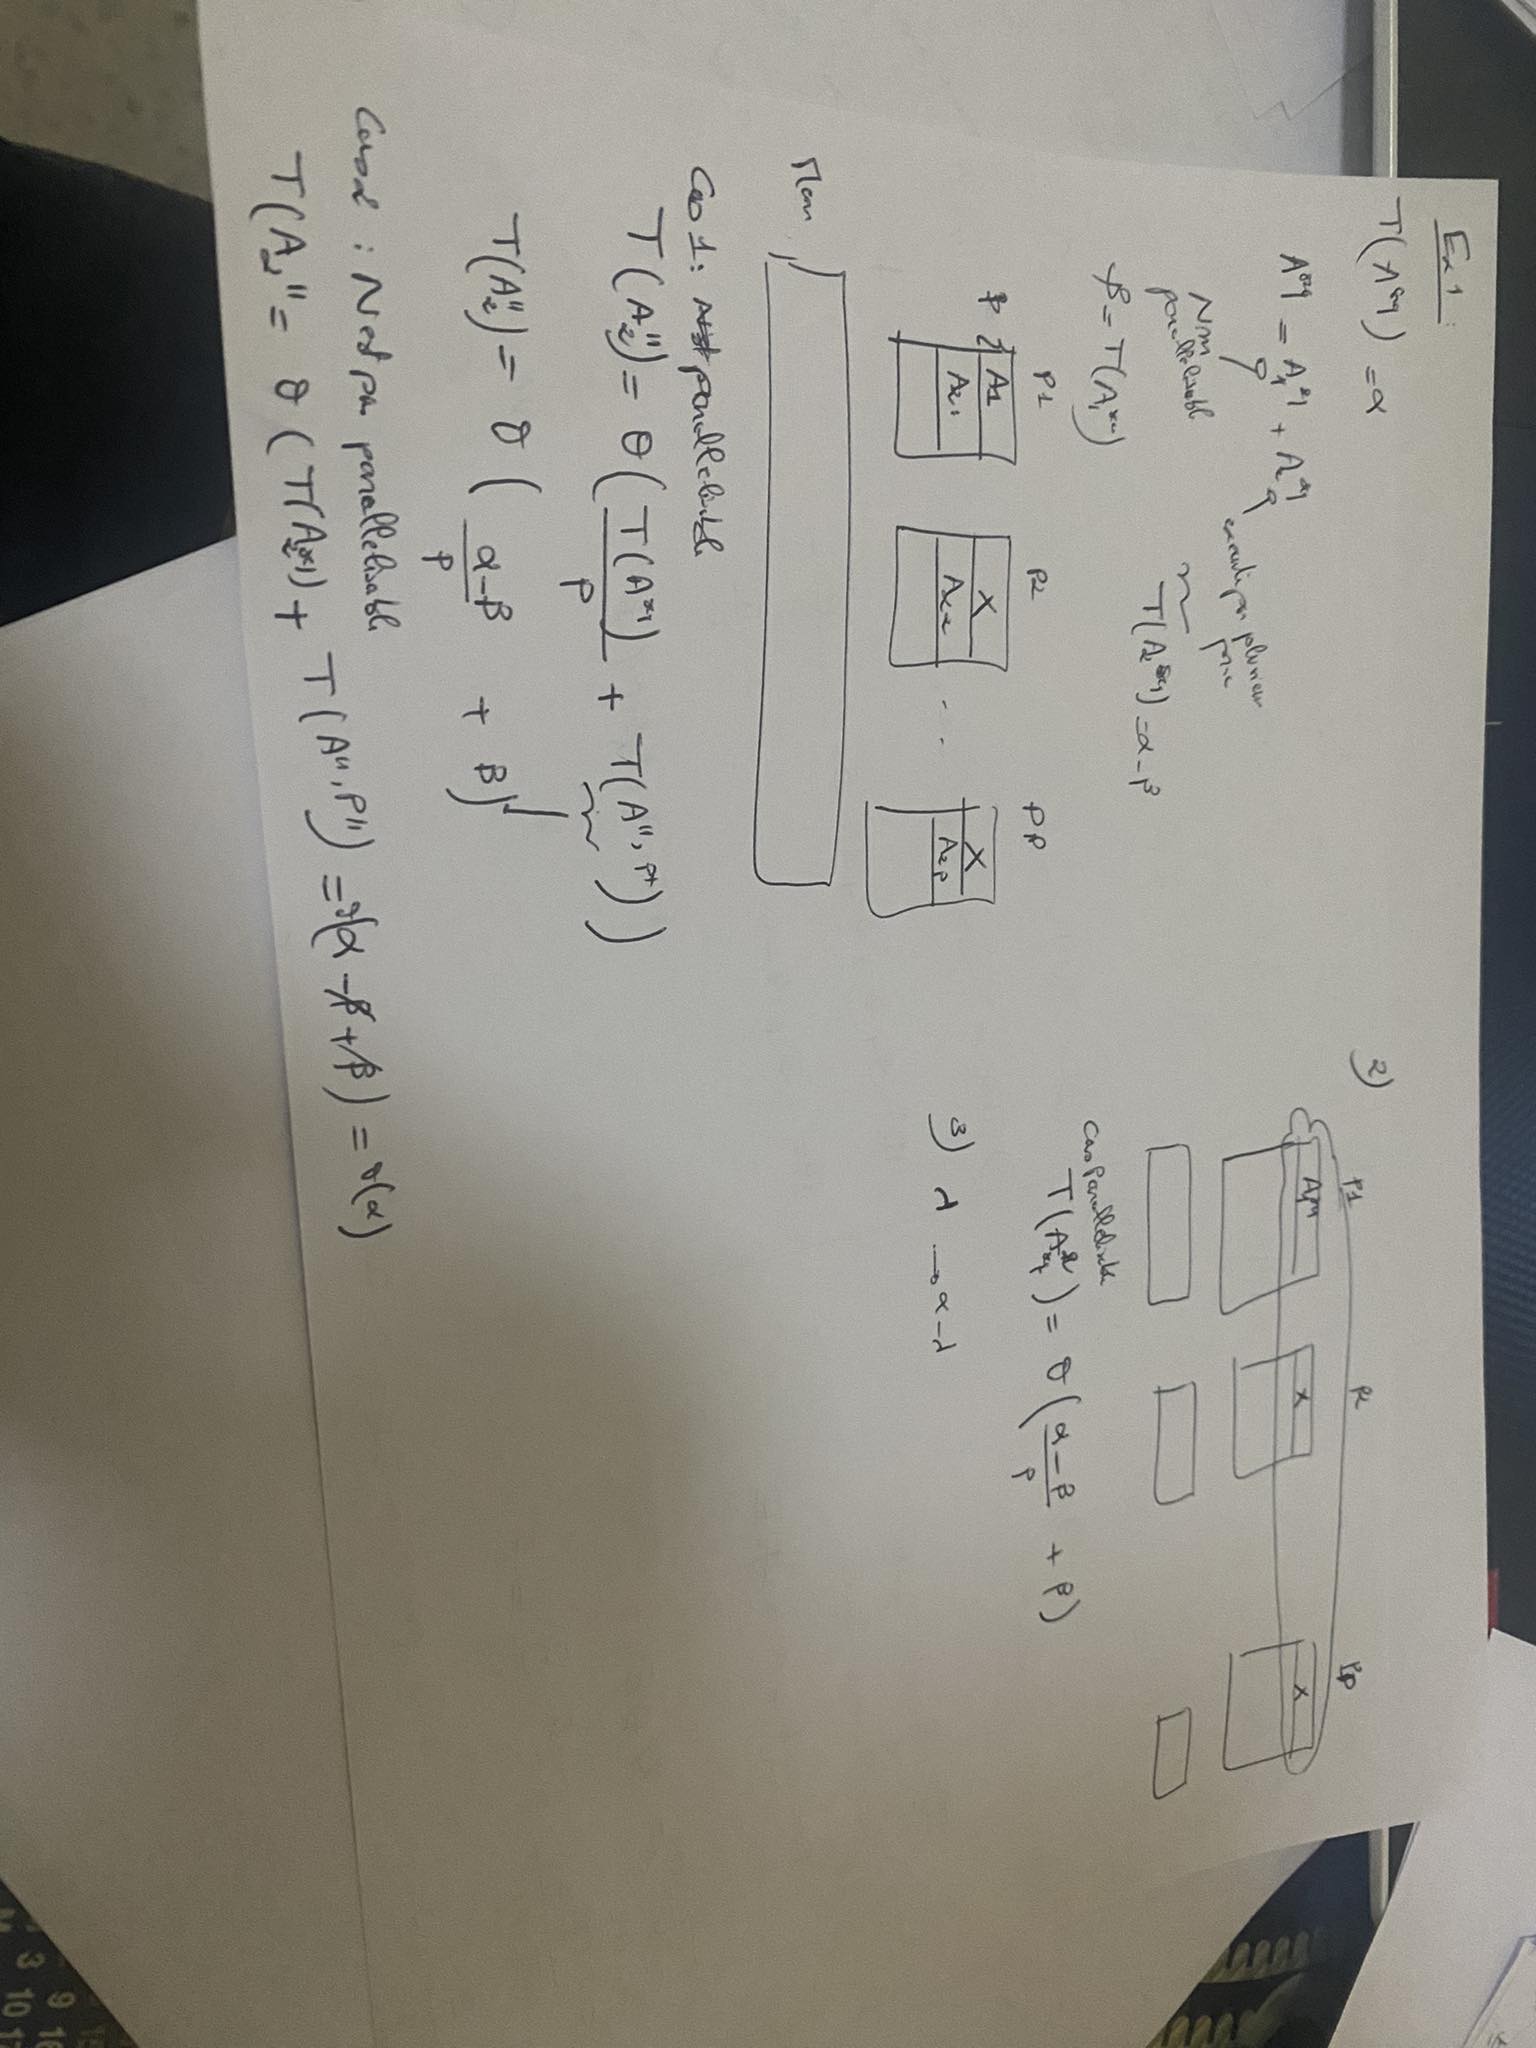 Ex 1 :
T(A^seq) = α
A^seq = A₁^seq + A₂^seq
Non parallelisable
execute par plusieurs proc
T(A₂^seq) = α - β
β = T(A₁^seq)
P1 P2 PP
β { A1 X X
A21 A22 .. A2p
Mem
Cas 1 : parallelisable
T(A₂'') = O( T(A^seq) / P + T(A'', P*) )
T(A₂'') = O( α-β / P + β )
Cas 2 : N'est pas parallelisable
T(A₂'' = O( T(A₂^seq) + T(A'', P'') = O(α - β + β) = O(α)
2)
P1 P2 PP
A₁^seq X X
Cas Parallelisable
T(A) = O( α - β / P + β )
3) λ → α - λ